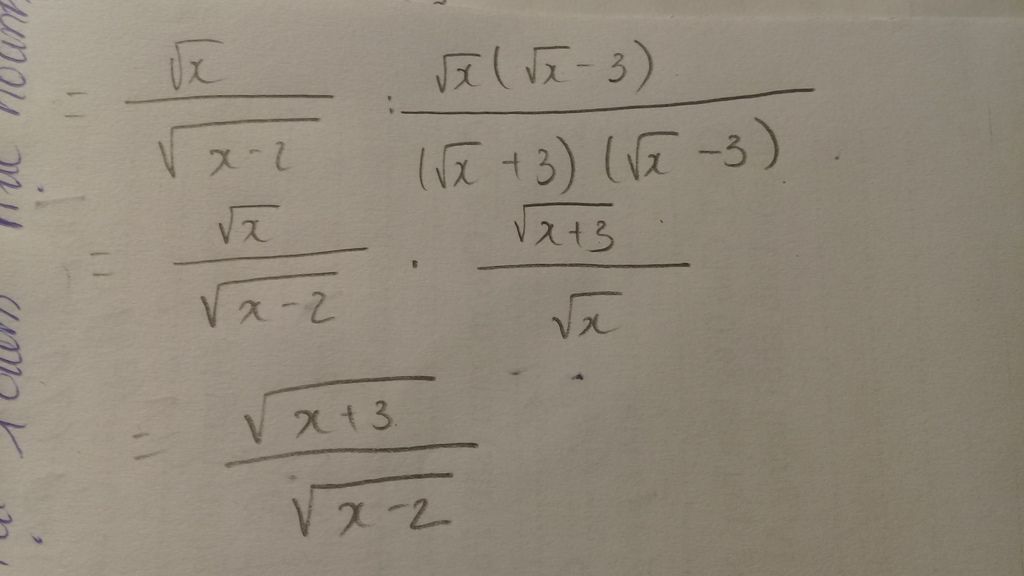 = √x / √(x-2) : √x(√x - 3) / (√x + 3)(√x - 3)
= √x / √(x-2) · √(x+3) / √x
= √(x+3) / √(x-2)